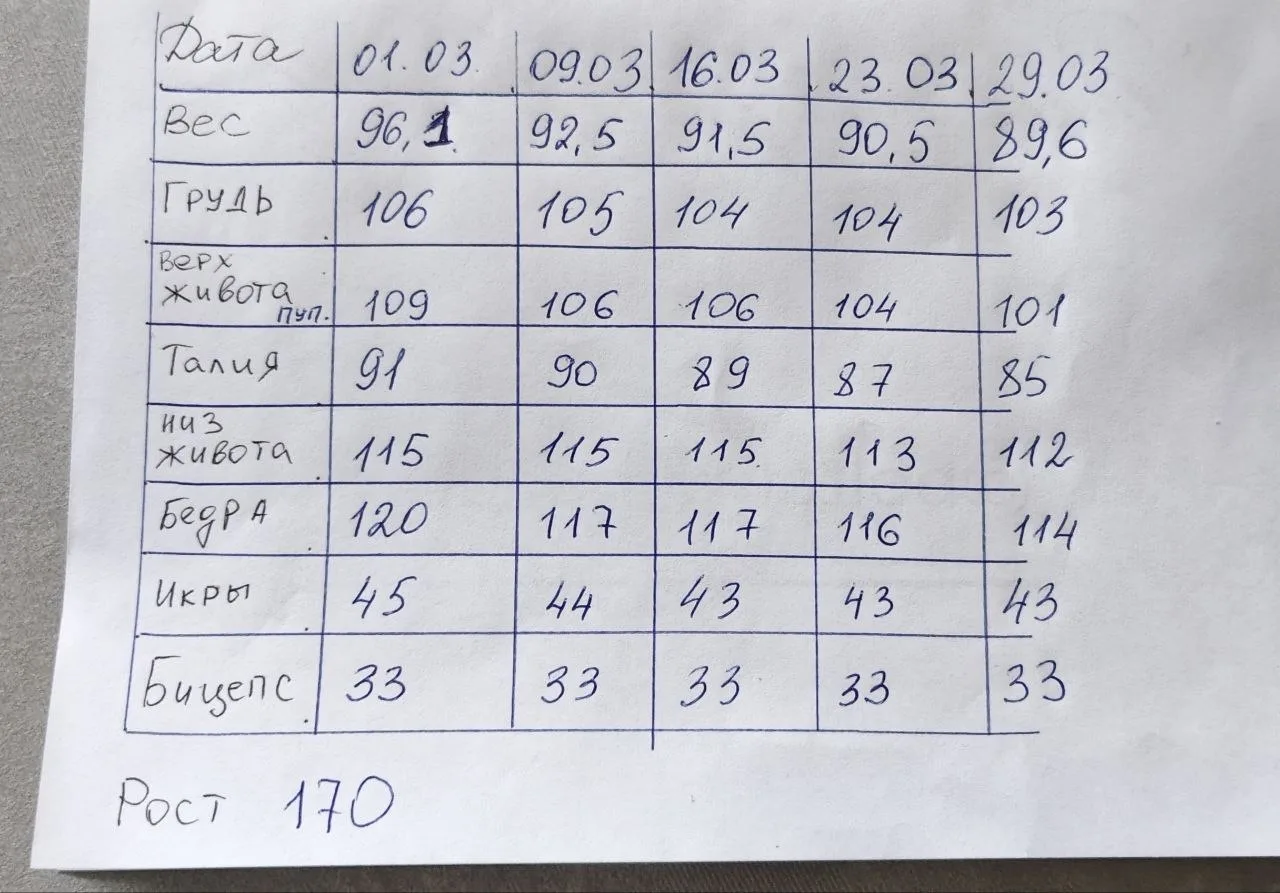 Дата 01.03. 09.03 16.03 23.03 29.03
Вес 96,1. 92,5 91,5 90,5 89,6
ГРУДЬ 106 105 104 104 103
Верх
живота
пуп. 109 106 106 104 101
Талия 91 90 89 87 85
низ
живота 115 115 115. 113 112
БедРА 120 117 117 116 114
Икры 45 44 43 43 43
Бицепс 33 33 33 33 33
Рост 170